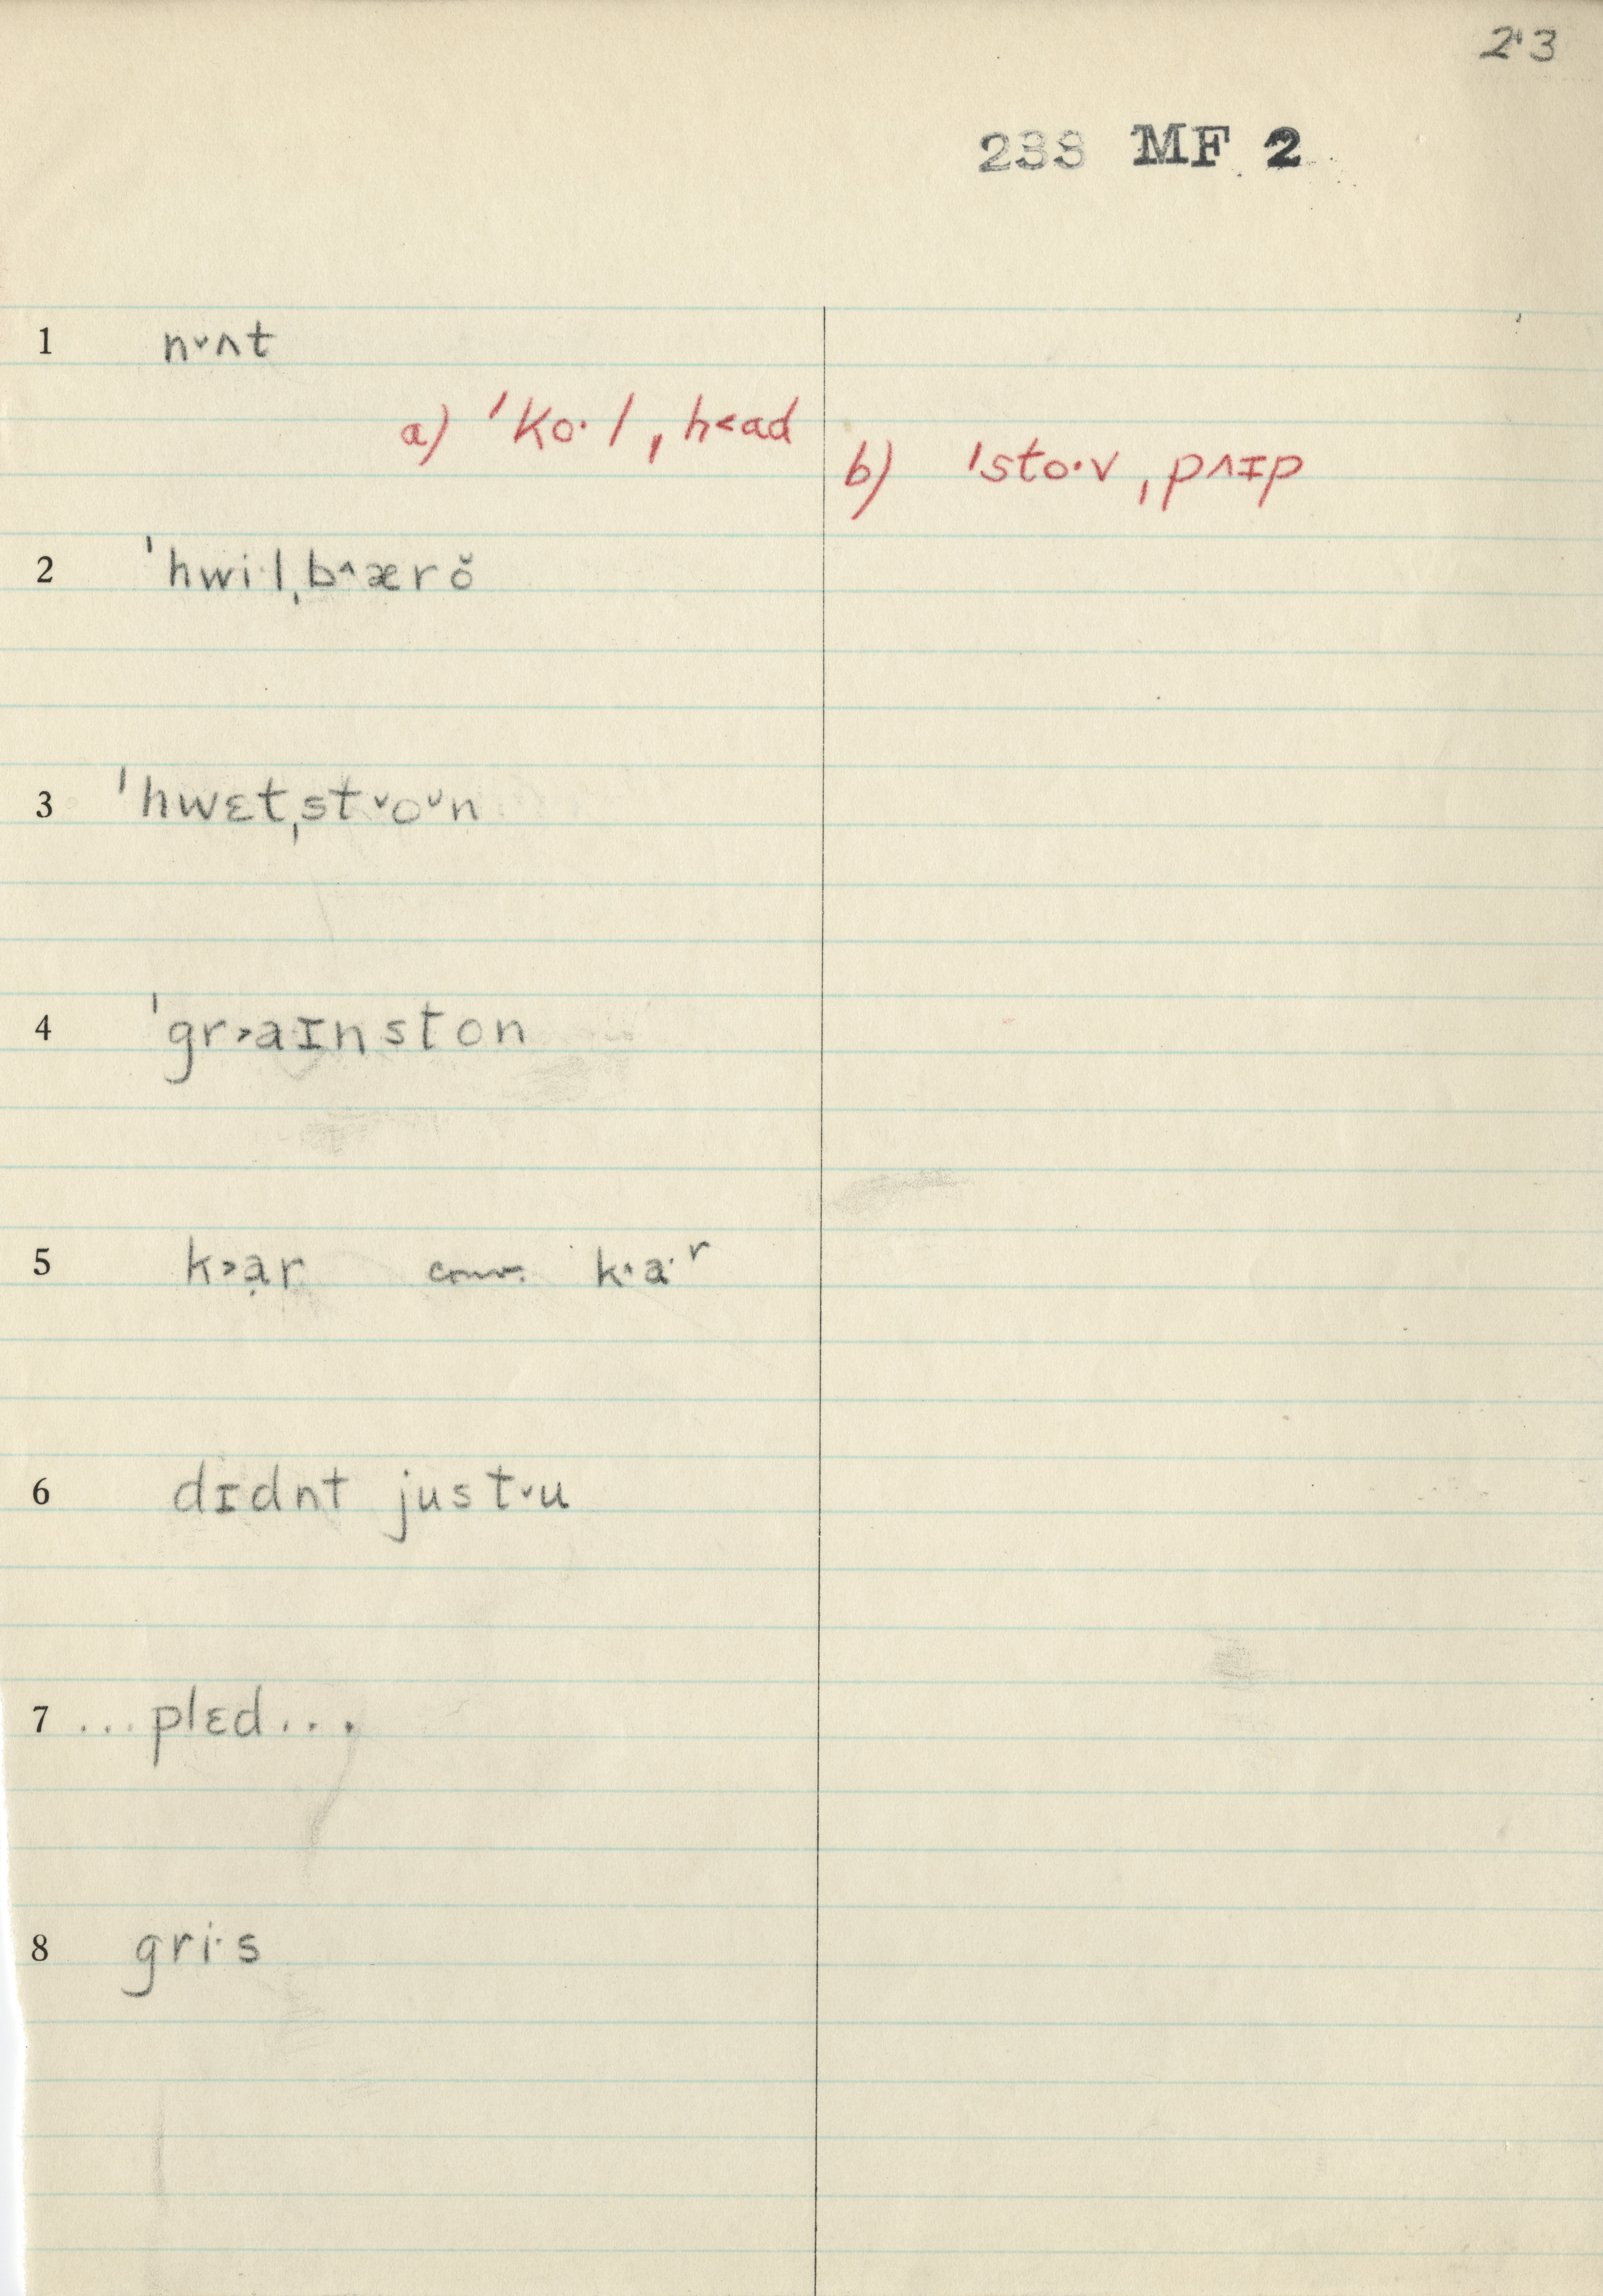 23
233 MF 2
1 n˅ʌt
a) ˈko·l ˌh˂ad
b) ˈsto·v ˌpʌɪp
2 ˈhwi·lˌb^ærŏ
3 ˈhwɛtˌst˅o˅n
4 ˈgr˃aɪnston
5 k˃ạr conv. k·a·ʳ
6 dɪdnt just˅u
7 ...plɛd...
8 gri·s